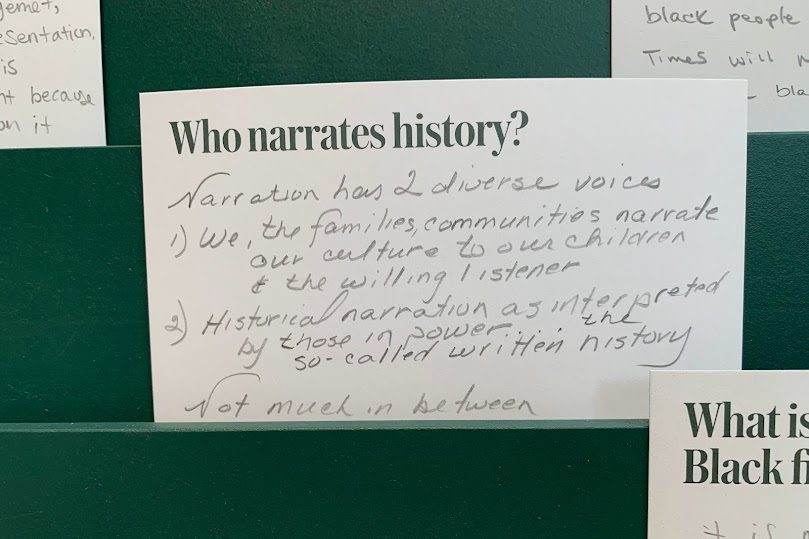 esentation,
is
because
on it
black people
Times will
bla
Who narrates history?
Narration has 2 diverse voices
1) We, the families, communities narrate
our culture to our children
& the willing listener
2) Historical narration as interpreted
by those in power... the
so-called written history
Not much in between
What is
Black fi
it is